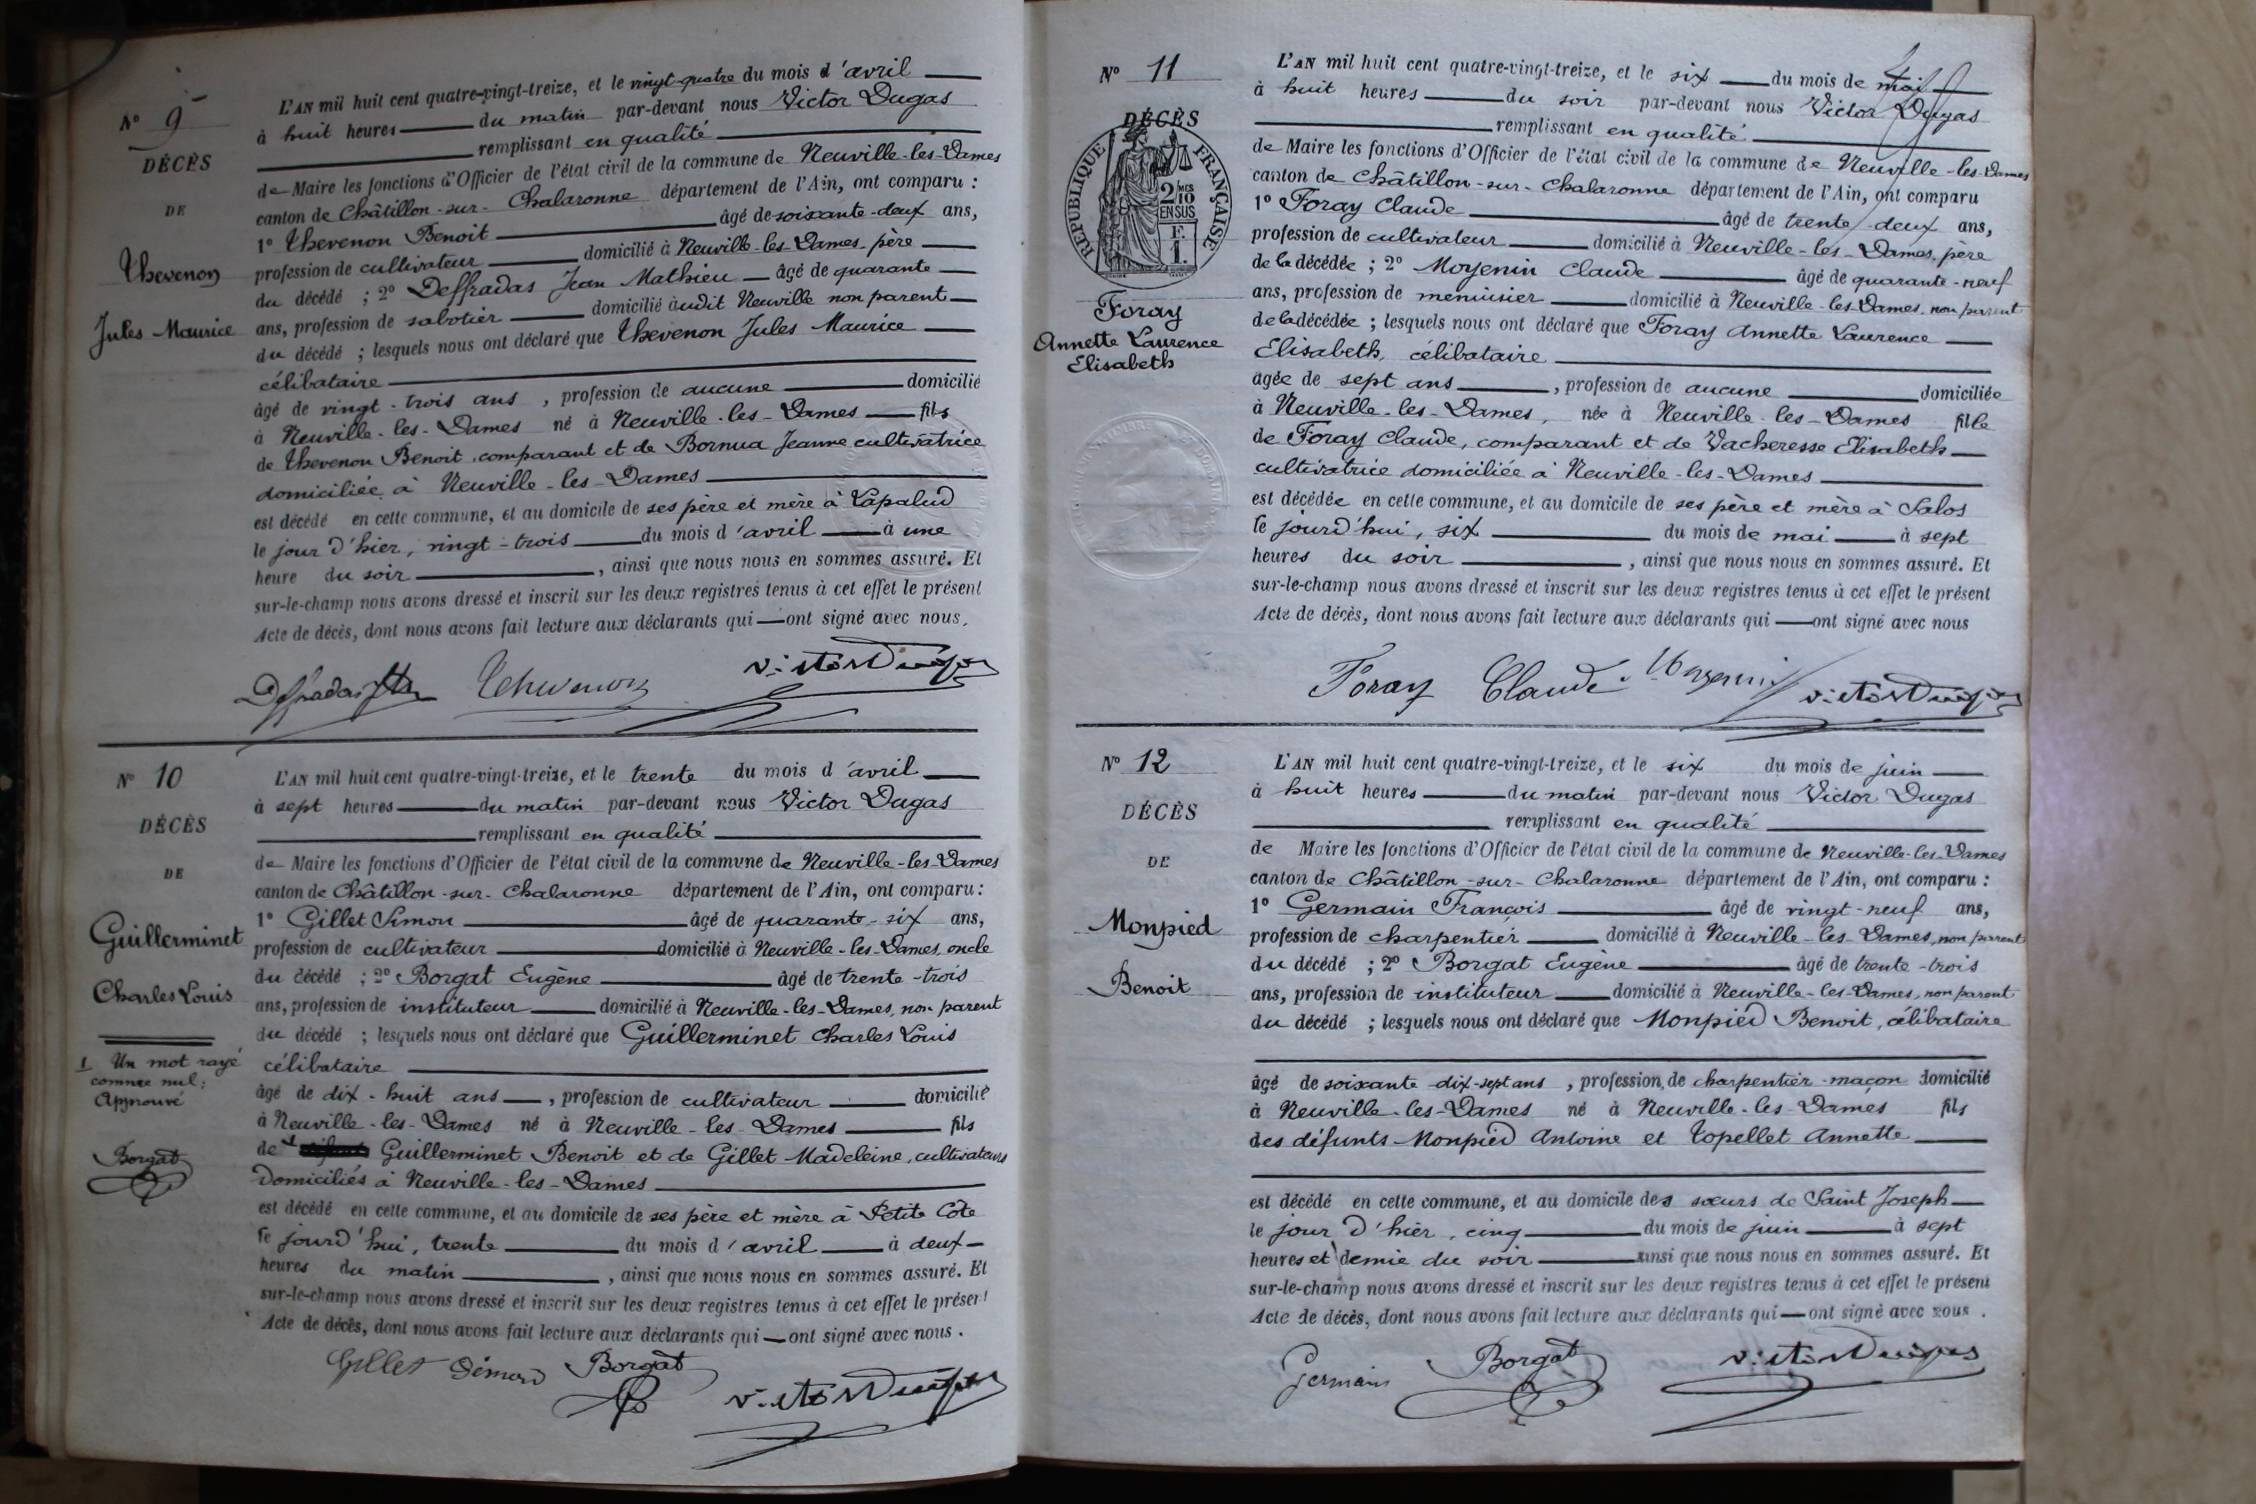 N° 9
DÉCÈS
DE
Thevenon
Jules Maurice
L'AN mil huit cent quatre-vingt-treize, et le vingt-quatre du mois d'avril
à huit heures du matin par-devant nous Victor Dugas
remplissant en qualité
de Maire les fonctions d'Officier de l'état civil de la commune de Neuville-les-Dames
canton de Châtillon-sur-Chalaronne département de l'Ain, ont comparu :
1° Thevenon Benoit âgé de soixante-deux ans,
profession de cultivateur domicilié à Neuville-les-Dames père
du décédé ; 2° Deffradas Jean Mathieu âgé de quarante
ans, profession de sabotier domicilié audit Neuville non parent
du décédé ; lesquels nous ont déclaré que Thevenon Jules Maurice
célibataire
âgé de vingt-trois ans, profession de aucune domicilié
à Neuville-les-Dames né à Neuville-les-Dames fils
de Thevenon Benoit, comparant et de Bornua Jeanne cultivatrice
domiciliée à Neuville-les-Dames
est décédé en cette commune, et au domicile de ses père et mère à Lapalud
le jour d'hier, vingt-trois du mois d'avril à une
heure du soir, ainsi que nous nous en sommes assuré. Et
sur-le-champ nous avons dressé et inscrit sur les deux registres tenus à cet effet le présent
Acte de décès, dont nous avons fait lecture aux déclarants qui ont signé avec nous.
Deffradas Thevenon Victor Dugas
N° 10
DÉCÈS
DE
Guillerminet
Charles Louis
1 Un mot rayé
comme nul;
Approuvé
Borgat
L'AN mil huit cent quatre-vingt-treize, et le trente du mois d'avril
à sept heures du matin par-devant nous Victor Dugas
remplissant en qualité
de Maire les fonctions d'Officier de l'état civil de la commune de Neuville-les-Dames
canton de Châtillon-sur-Chalaronne département de l'Ain, ont comparu :
1° Gillet Simon âgé de quarante-six ans,
profession de cultivateur domicilié à Neuville-les-Dames, oncle
du décédé ; 2° Borgat Eugène âgé de trente-trois
ans, profession de instituteur domicilié à Neuville-les-Dames, non parent
du décédé ; lesquels nous ont déclaré que Guillerminet Charles Louis
célibataire
âgé de dix-huit ans, profession de cultivateur domicilié
à Neuville-les-Dames né à Neuville-les-Dames fils
de 1 Guillerminet Benoit et de Gillet Madeleine, cultivateurs
domiciliés à Neuville-les-Dames
est décédé en cette commune, et au domicile de ses père et mère à Petite Côte
le jourd'hui, trente du mois d'avril à deux
heures du matin, ainsi que nous nous en sommes assuré. Et
sur-le-champ nous avons dressé et inscrit sur les deux registres tenus à cet effet le présent
Acte de décès, dont nous avons fait lecture aux déclarants qui ont signé avec nous.
Gillet Simond Borgat Victor Dugas
N° 11
DÉCÈS
RÉPUBLIQUE FRANÇAISE
2/10 MES
EN SUS
F.
1.
Foray
Annette Laurence
Elisabeth
L'AN mil huit cent quatre-vingt-treize, et le six du mois de mai
à huit heures du soir par-devant nous Victor Dugas
remplissant en qualité
de Maire les fonctions d'Officier de l'état civil de la commune de Neuville-les-Dames
canton de Châtillon-sur-Chalaronne département de l'Ain, ont comparu
1° Foray Claude âgé de trente-deux ans,
profession de cultivateur domicilié à Neuville-les-Dames, père
de la décédée ; 2° Moyenin Claude âgé de quarante-neuf
ans, profession de menuisier domicilié à Neuville-les-Dames, non parent
de la décédée ; lesquels nous ont déclaré que Foray Annette Laurence
Elisabeth, célibataire
âgée de sept ans, profession de aucune domiciliée
à Neuville-les-Dames, née à Neuville-les-Dames fille
de Foray Claude, comparant et de Vacheresse Elisabeth
cultivatrice domiciliée à Neuville-les-Dames
est décédée en cette commune, et au domicile de ses père et mère à Salos
le jourd'hui, six du mois de mai à sept
heures du soir, ainsi que nous nous en sommes assuré. Et
sur-le-champ nous avons dressé et inscrit sur les deux registres tenus à cet effet le présent
Acte de décès, dont nous avons fait lecture aux déclarants qui ont signé avec nous
Foray Claude Moyenin Victor Dugas
N° 12
DÉCÈS
DE
Monpied
Benoit
L'AN mil huit cent quatre-vingt-treize, et le six du mois de juin
à huit heures du matin par-devant nous Victor Dugas
remplissant en qualité
de Maire les fonctions d'Officier de l'état civil de la commune de Neuville-les-Dames
canton de Châtillon-sur-Chalaronne département de l'Ain, ont comparu :
1° Germain François âgé de vingt-neuf ans,
profession de charpentier domicilié à Neuville-les-Dames, non parent
du décédé ; 2° Borgat Eugène âgé de trente-trois
ans, profession de instituteur domicilié à Neuville-les-Dames, non parent
du décédé ; lesquels nous ont déclaré que Monpied Benoit, célibataire
âgé de soixante-dix-sept ans, profession de charpentier-maçon domicilié
à Neuville-les-Dames né à Neuville-les-Dames fils
des défunts Monpied Antoine et Topellet Annette
est décédé en cette commune, et au domicile des sœurs de Saint Joseph
le jour d'hier, cinq du mois de juin à sept
heures et demie du soir ainsi que nous nous en sommes assuré. Et
sur-le-champ nous avons dressé et inscrit sur les deux registres tenus à cet effet le présent
Acte de décès, dont nous avons fait lecture aux déclarants qui ont signé avec nous.
Germain Borgat Victor Dugas